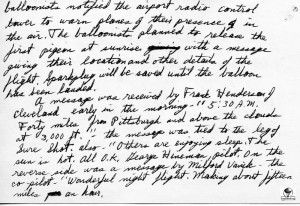 balloonists notified the airport radio control
tower to warn planes of their presence of in
the air. The balloonists planned to release the
first pigeon at sunrise with a message
giving their location and other details of the
flight. Sparkplug will be saved until the balloon
has been landed.
A message was received by Frank Henderson of
Cleveland early in the morning - "5:30 A.M.
Forty miles from Pittsburgh and above the clouds
at 3,000 ft." the message was tied to the leg of
Sure Shot. also - "Others are enjoying sleep. The
sun is hot. All O.K. George Hineman, pilot. On the
reverse side was a message by Milford Vanik - the
co-pilot - "Wonderful night flight. Making about fifteen
miles an hour.